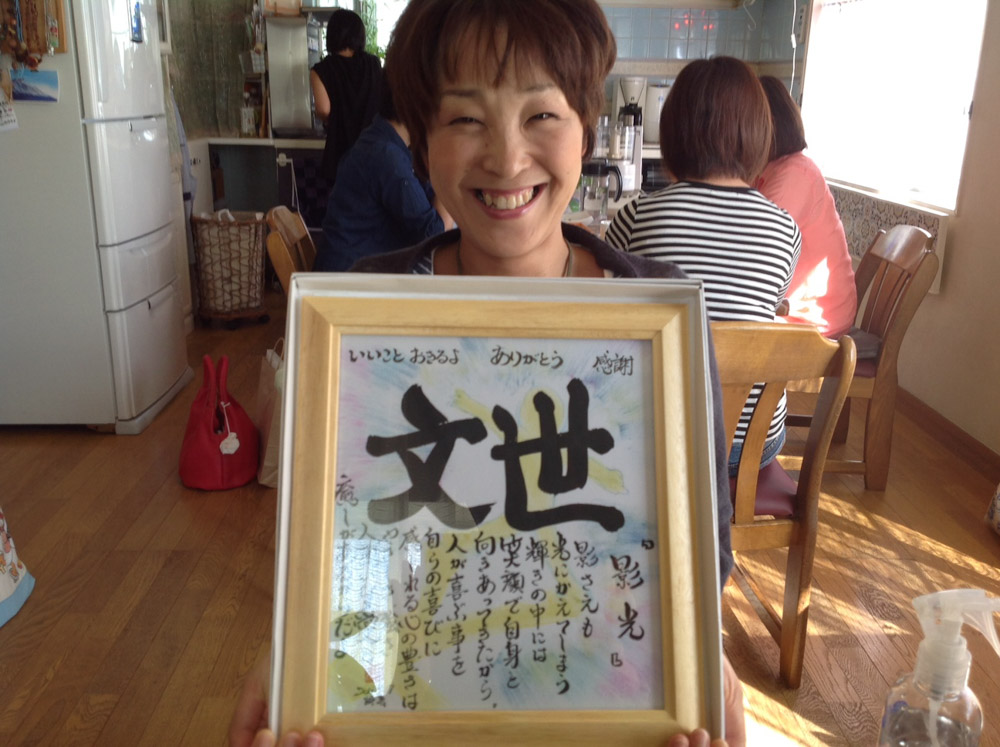 いいこと おきるよ ありがとう 感謝
世文
「影光」
影さえも
光にかえてしまう
輝きの中には
笑顔で自身と
向きあってきたから。
人が喜ぶ事を
自らの喜びに
れる心の豊さは